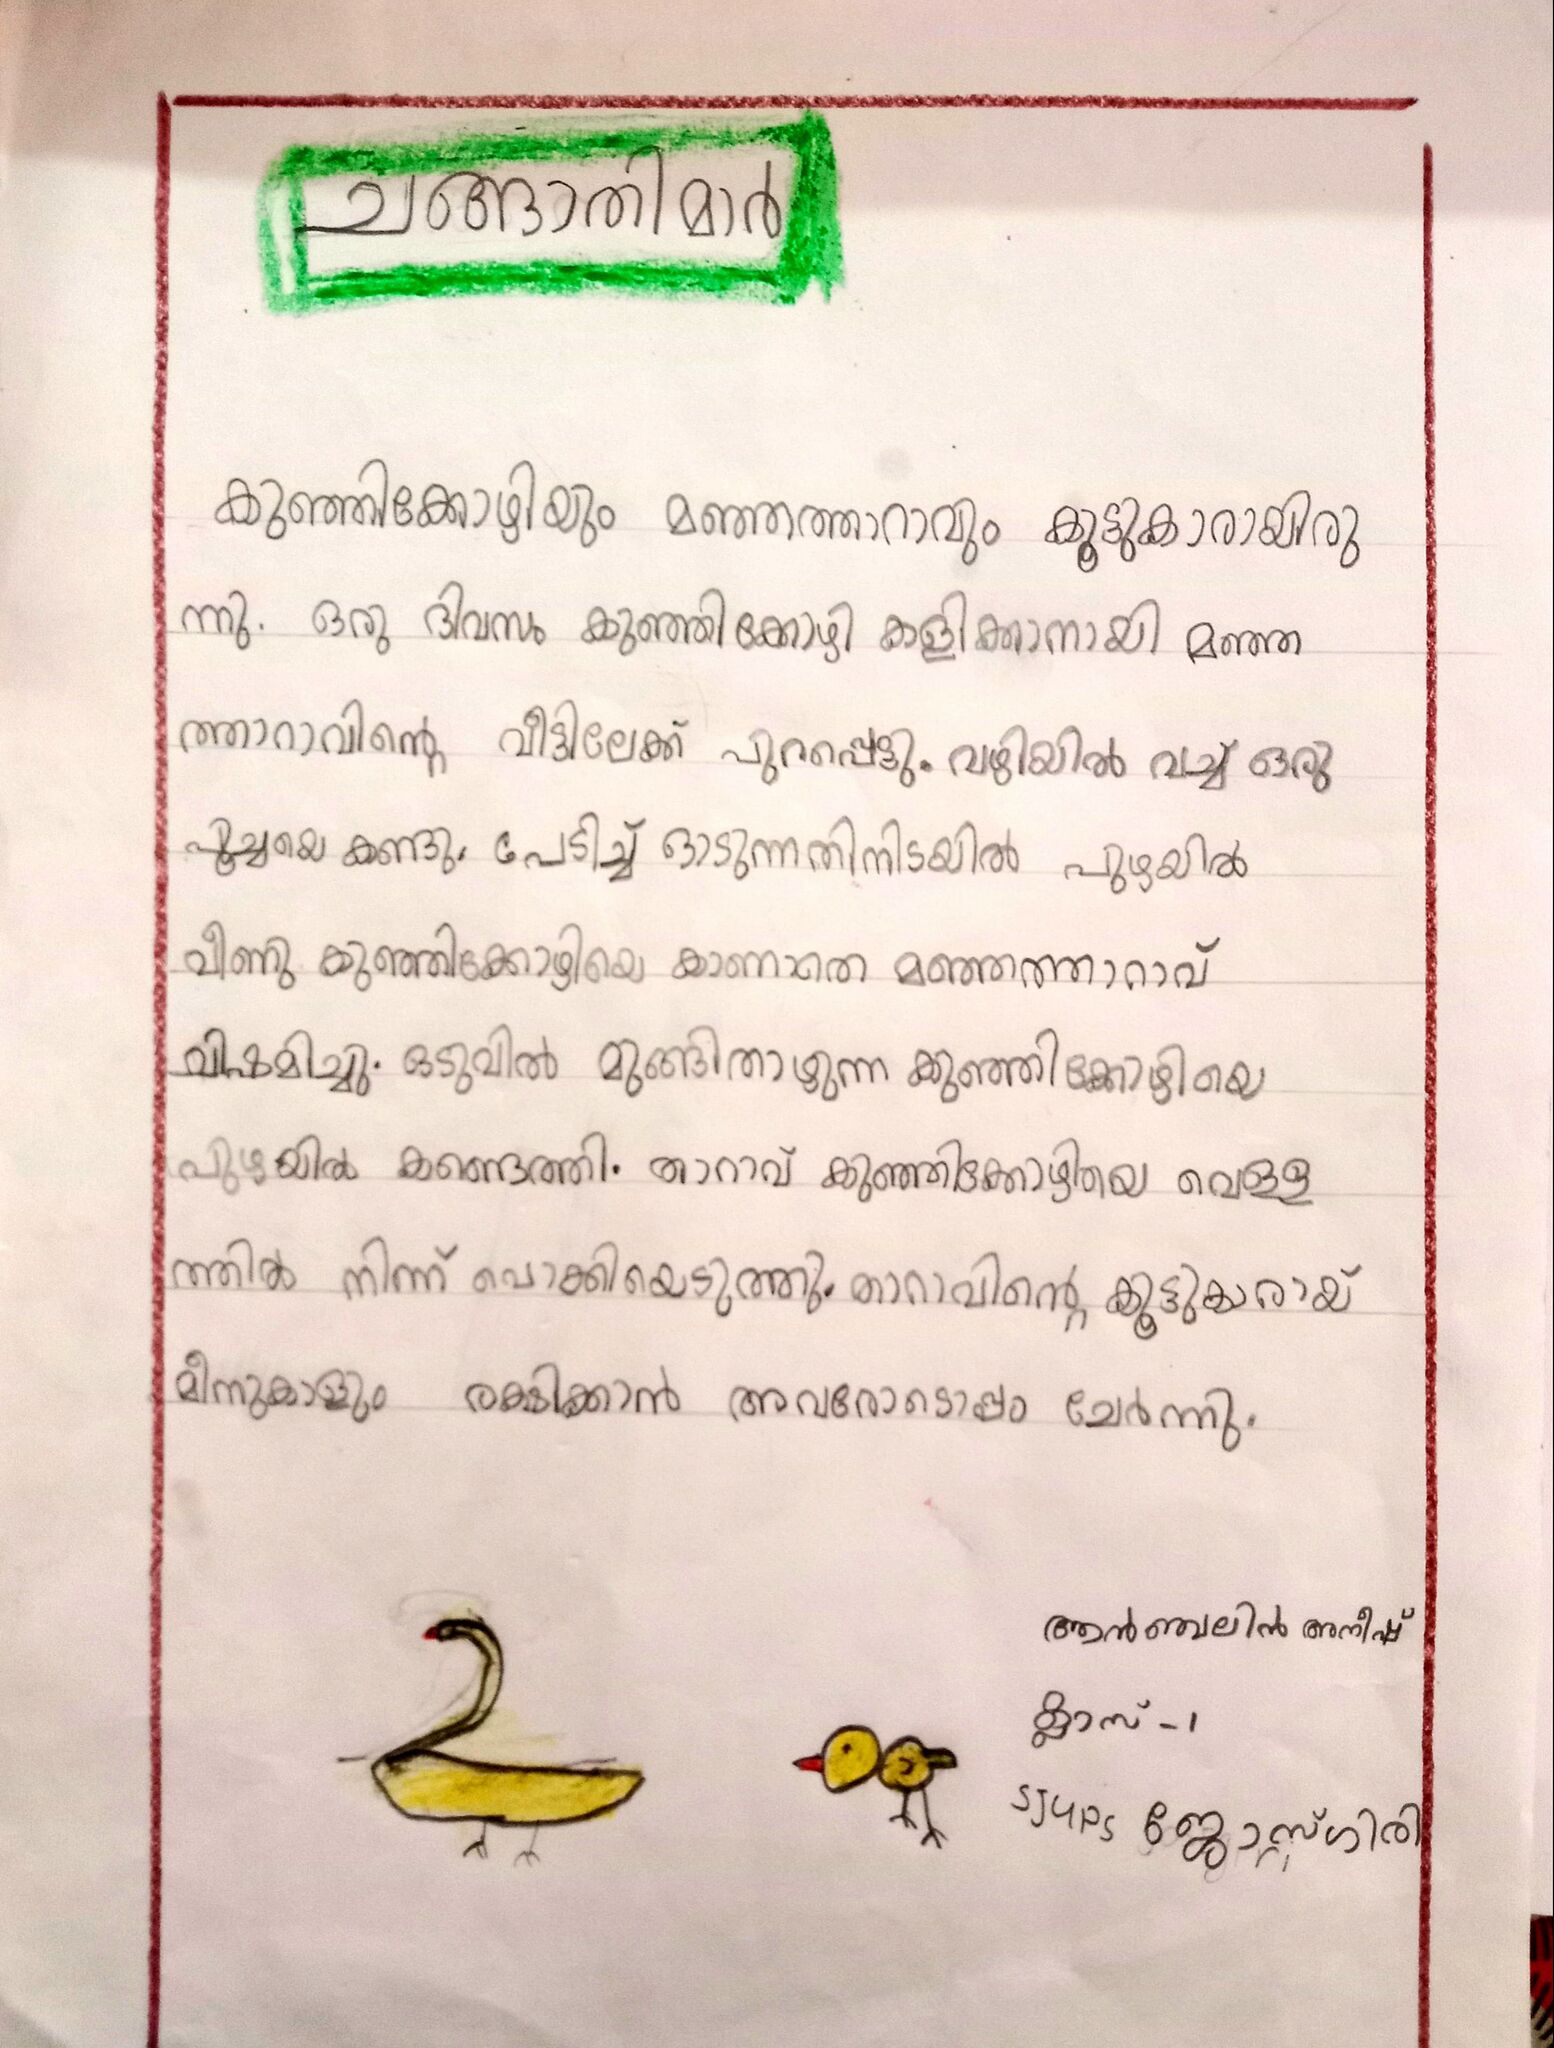 ചങ്ങാതിമാർ
കുഞ്ഞിക്കോഴിയും മഞ്ഞത്താറാവും കൂട്ടുകാരായിരു
ന്നു. ഒരു ദിവസം കുഞ്ഞിക്കോഴി കളിക്കാനായി മഞ്ഞ
ത്താറാവിന്റെ വീട്ടിലേക്ക് പുറപ്പെട്ടു. വഴിയിൽ വച്ച് ഒരു
പൂച്ചയെ കണ്ടു. പേടിച്ച് ഓടുന്നതിനിടയിൽ പുഴയിൽ
വീണു കുഞ്ഞിക്കോഴിയെ കാണാതെ മഞ്ഞത്താറാവ്
വിഷമിച്ചു. ഒടുവിൽ മുങ്ങിതാഴുന്ന കുഞ്ഞിക്കോഴിയെ
പുഴയിൽ കണ്ടെത്തി. താറാവ് കുഞ്ഞിക്കോഴിയെ വെള്ള
ത്തിൽ നിന്ന് പൊക്കിയെടുത്തു. താറാവിന്റെ കൂട്ടുകാരായ്
മീനുകാളും രക്ഷിക്കാൻ അവരോടൊപ്പം ചേർന്നു.
ആൻഞ്ചലിൻ അനീഷ്
ക്ലാസ് -1
SJUPS ജോസ്ഗിരി